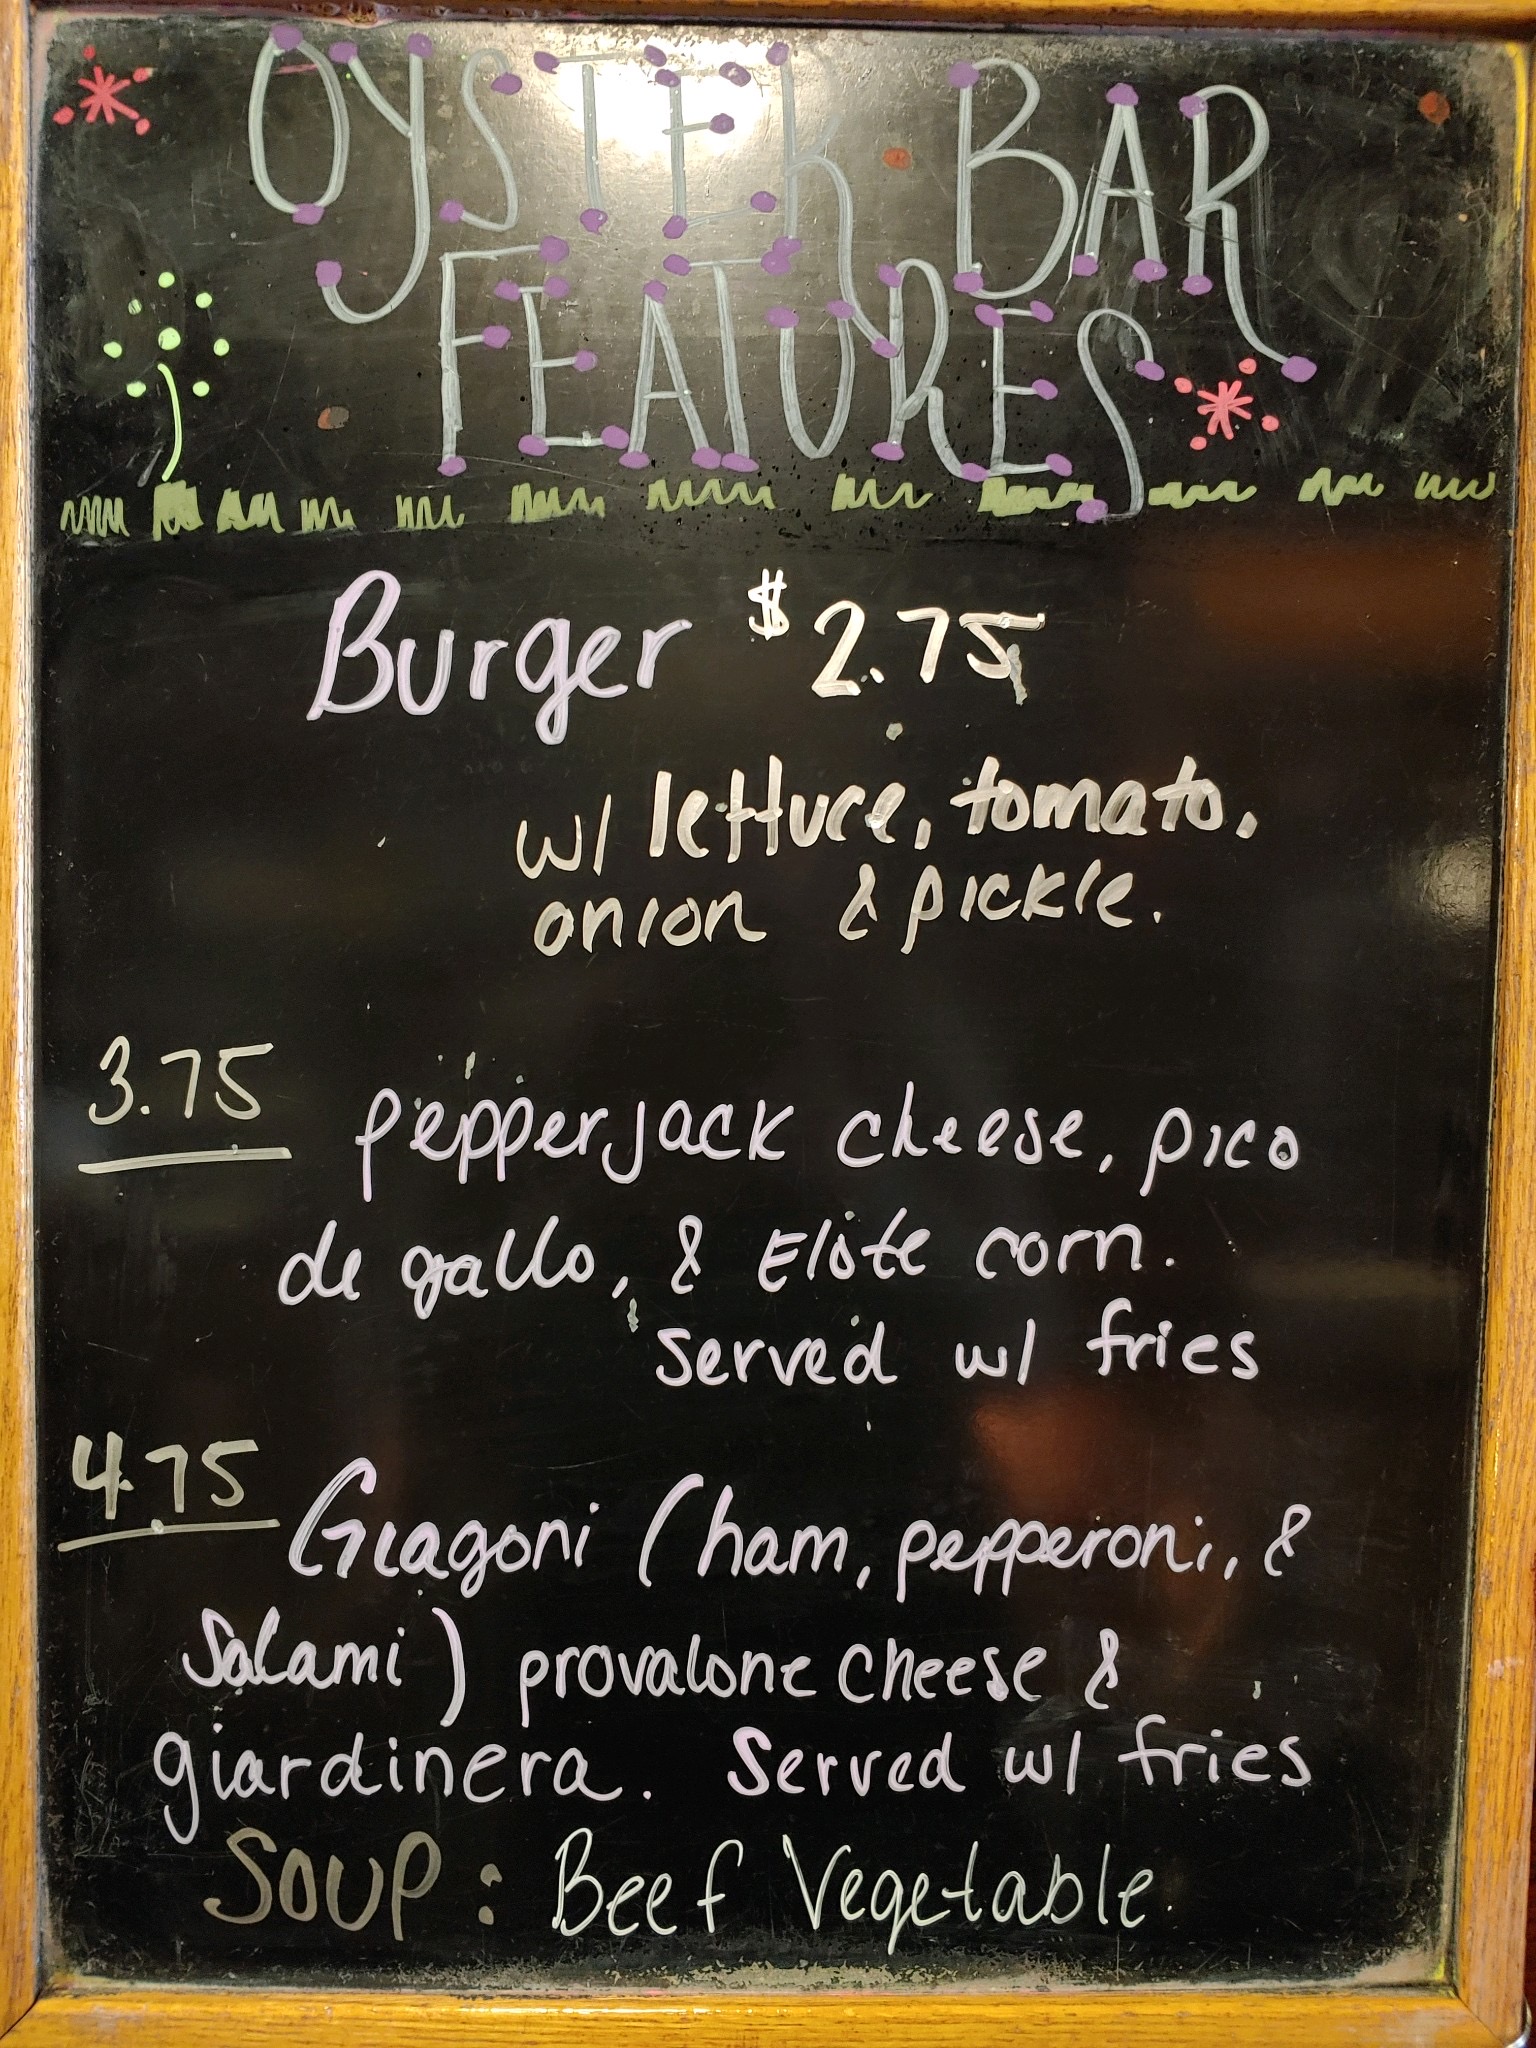 OYSTER BAR
FEATURES
Burger $2.75
w/ lettuce, tomato,
onion & pickle.
3.75 pepperjack cheese, pico
de gallo, & Elote corn.
served w/ fries
4.75 Giagoni (ham, pepperoni, &
Salami) provalone cheese &
giardinera. Served w/ fries
SOUP: Beef Vegetable.